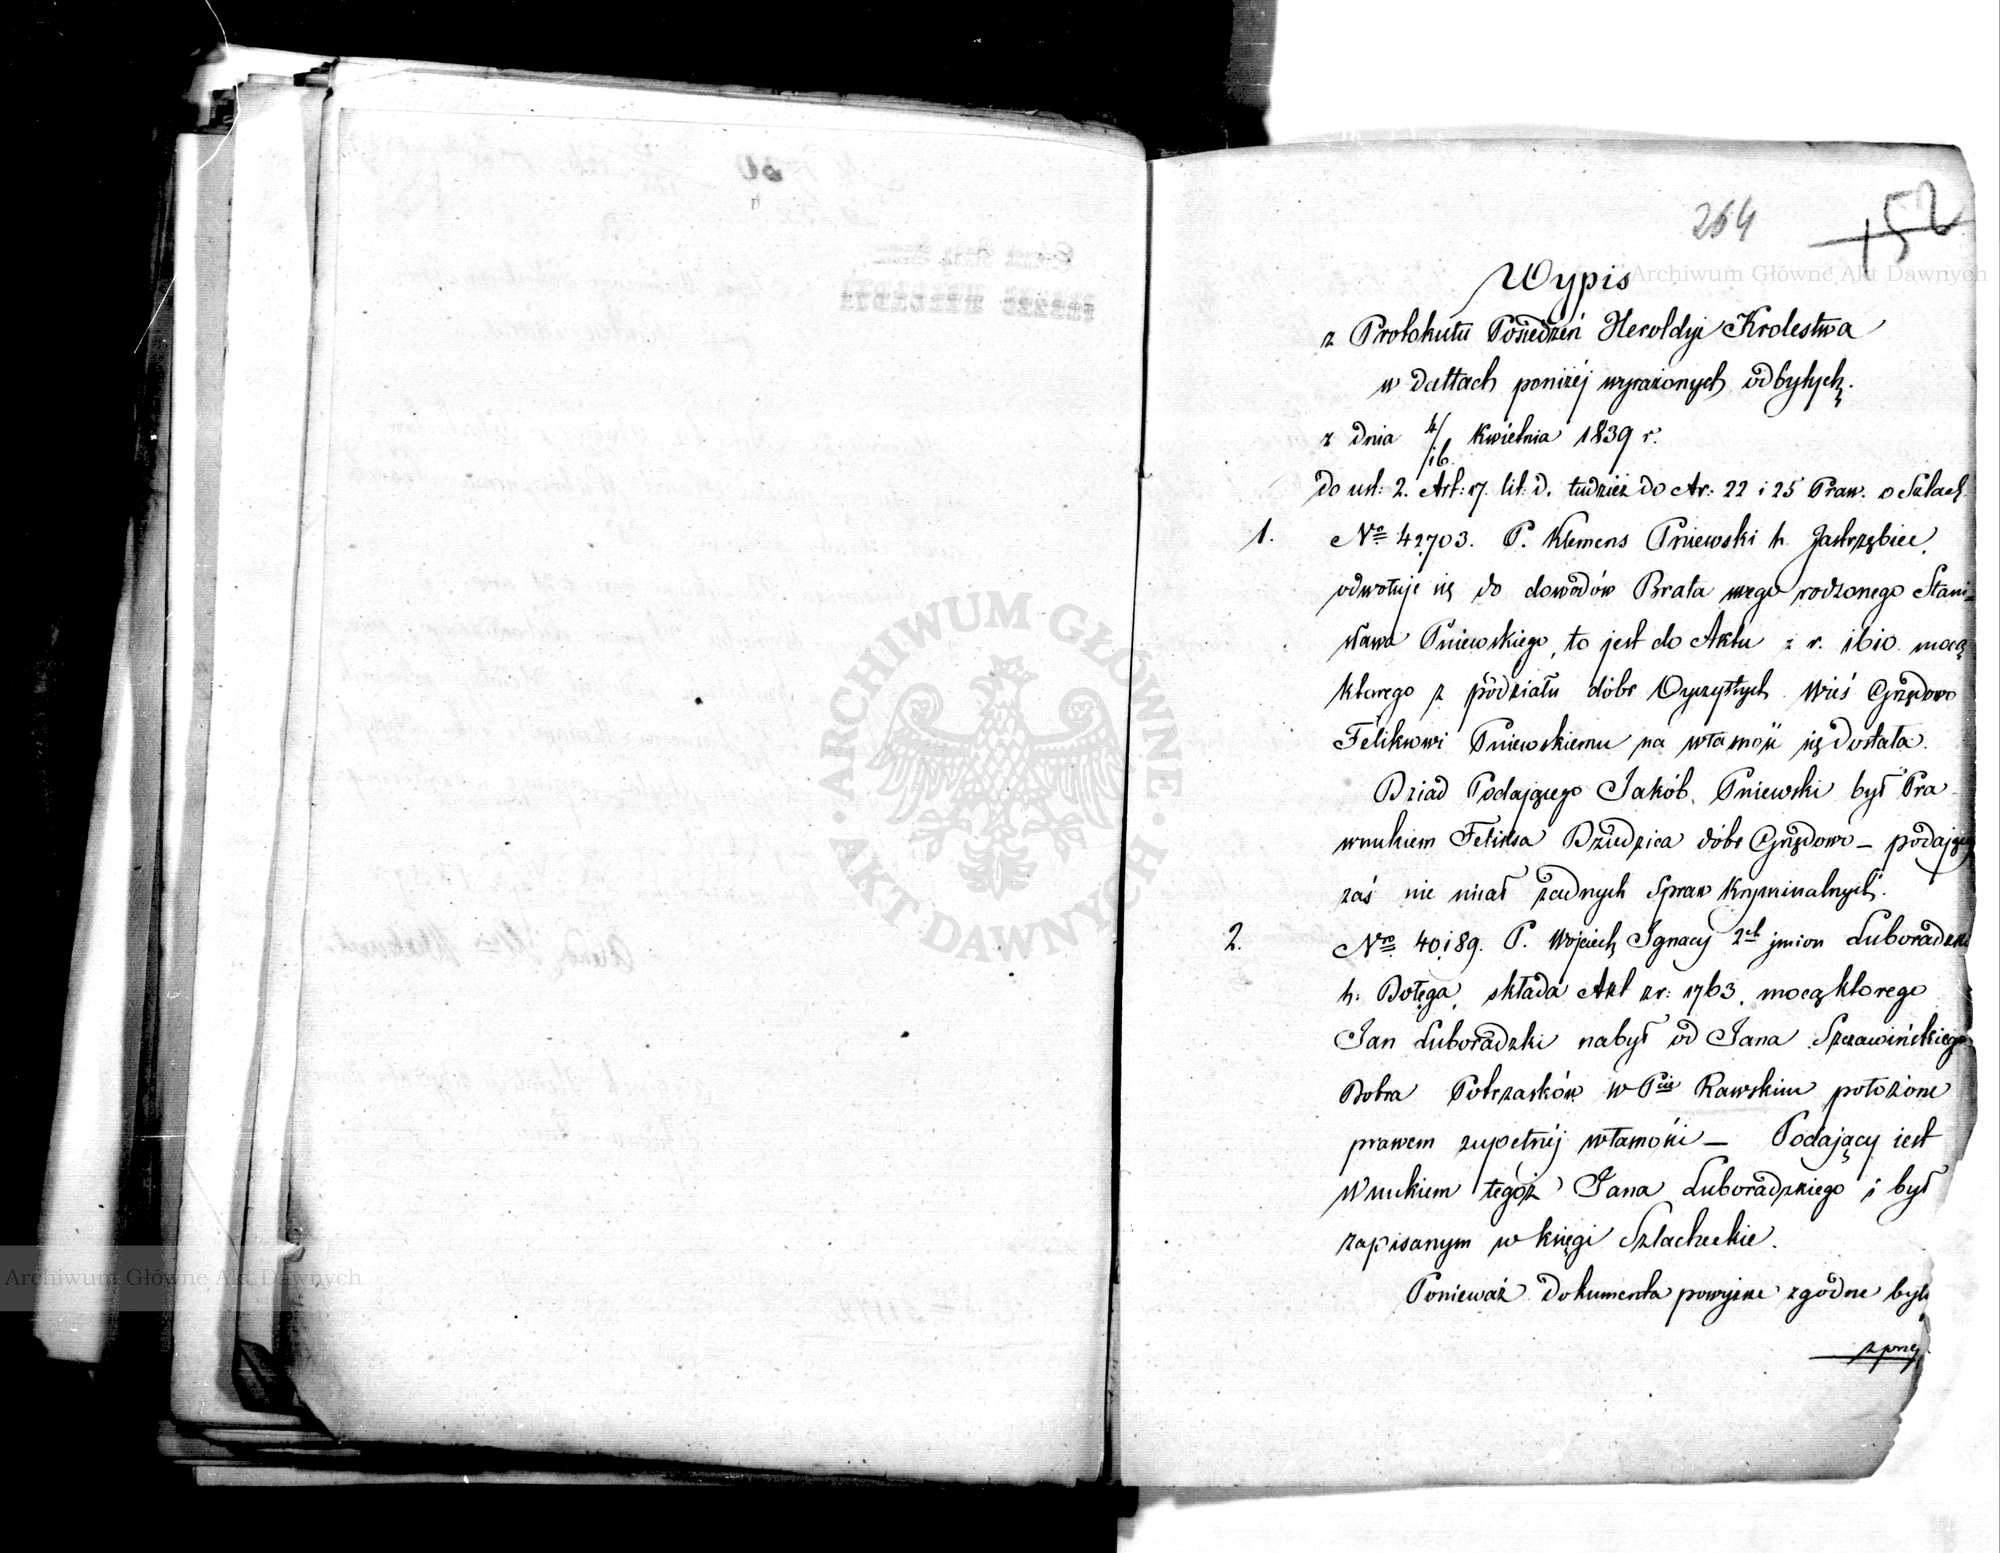 264
152
Wypis
z Protokułu Posiedzeń Heroldyi Krolestwa
w dattach poniżej wyrażonych odbytych.
z dnia 4/16 Kwietnia 1839 r.
do ust: 2. Art: 17. lit. d. tudzież do Ar: 22 i 25 Praw. o Szlach.
1. No 42703. P. Klemens Pniewski h. Jastrzębiec,
odwołuje się do dowodów Brata swego rodzonego Stani=
sława Pniewskiego, to jest do Aktu z r. 1610. mocą
ktorego z podziału dobr Oyczystych Wieś Grzędowo
Felixowi Pniewskiemu na własność się dostała.
Dziad Podającego Jakób Pniewski był Pra
wnukiem Felixa Dziedzica dóbr Grzędowo — podający
zaś nie miał żadnych Spraw kryminalnych.
2. Nro 40,189. P. Wojciech Ignacy 2ch imion Luboradzki
h: Dołęga, składa Akt z r: 1763, mocą ktorego
Jan Luboradzki nabył od Jana Szczawińskiego
Dobra Potrzasków w Pcie Rawskim położone
prawem zupełnéj własności — Podający iest
Wnukiem tegoż Jana Luboradzkiego i był
zapisanym w księgi Szlacheckie.
Ponieważ dokumenta powyższe zgodne były
z prze
Archiwum Główne Akt Dawnych
Archiwum Główne Akt Dawnych
ARCHIWUM GŁÓWNE
AKT DAWNYCH